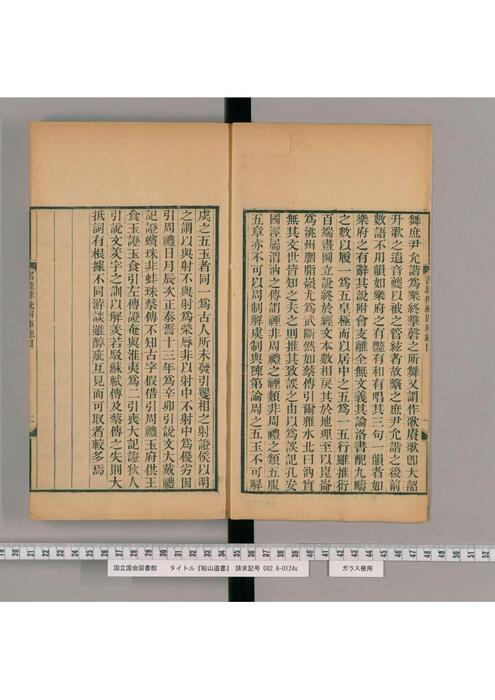 舞庶尹允諧爲樂終擊磬之所舞又謂作歌賡歌卽大韶
升歌之遺音夔以被之管絃者故繫之庶尹允諧之後前
數語不用韻如樂府之有豔有和有唱其三句一韻者如
樂府之有辭其說附會支離全無文義其論洛書配九疇
之數以履一爲五皇極而以居中之五爲一五行雖推衍
百端畫圖立說終於經文本數相戾其於地理至以崑崙
爲洮州胭脂嶺尤爲武斷然如蔡傳引爾雅水北曰汭實
無其文世皆知之夫之則推其致誤之由以爲誤記孔安
國涇屬渭汭之傳謂禋非周禮之禋類非周禮之類五服
五章亦不可以周制解虞制與陳第論周之五玉不可解
虞之五玉者同一爲古人所未發引矍相之射證侯以明
之謂以與射不與射爲榮辱非以射中不射中爲優劣因
引周禮日月辰次正泰誓十三年爲辛卯引說文大戴禮
記證蠙珠非蚌珠蔡傳不知古字假借引周禮玉府供王
食玉證玉食引左傳證奄與淮夷爲二引喪大記證狄人
引說文羑字之訓以解羑若駁蘇軾傳及蔡傳之失則大
抵詞有根據不同游談雖醇疵互見而可取者較多焉
国立国会図書館 タイトル『船山遺書』 請求記号 082.6-O124s
ガラス使用